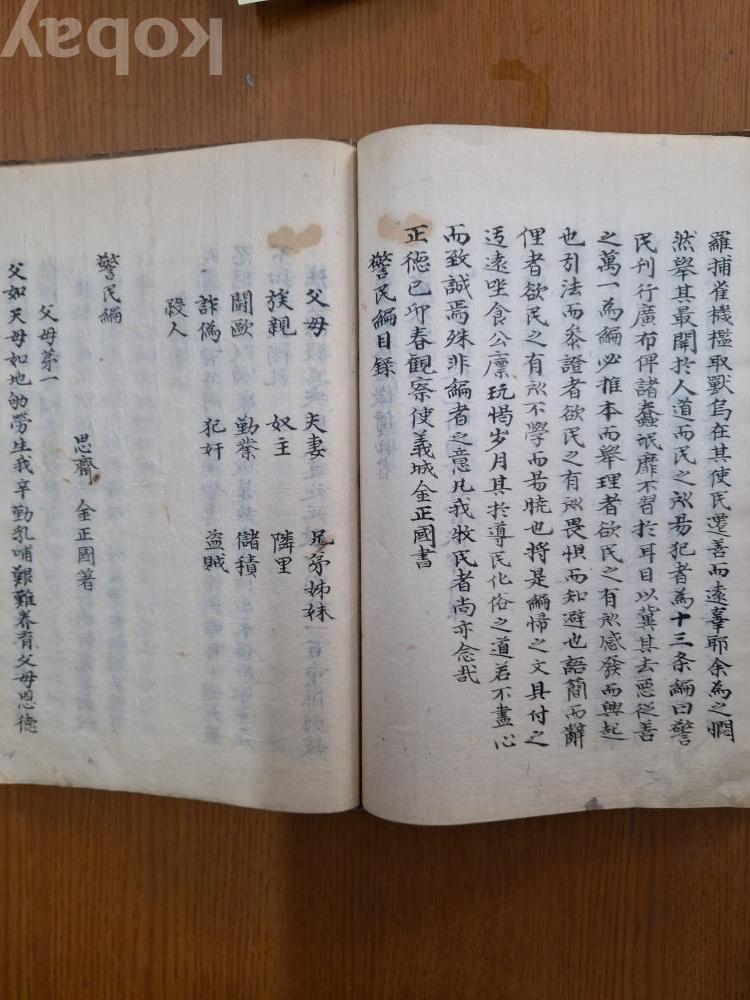 羅捕雀機檻取獸烏在其使民遷善而遠辜耶余為之憫
然舉其最關於人道而民之所易犯者為十三条編曰警
民刊行廣布俾諸蠢氓靡不習於耳目以冀其去惡從善
之萬一為編必推本而舉理者欲民之有所感發而興起
也引法而參證者欲民之有所畏惧而知避也語簡而辭
俚者欲民之有所不學而易曉也將是編帰之文具付之
迃遠坐食公廩玩愒岁月其於導民化俗之道若不盡心
而致誠焉殊非編者之意凡我牧民者尚亦念哉
正德已卯春觀察使義城金正國書
警民編目錄
父母 夫妻 兄弟姊妹
族親 奴主 隣里
鬪歐 勤業 儲積
詐偽 犯奸 盜賊
殺人
警民編
思齊 金正國著
父母第一
父如天母如地劬勞生我辛勤乳哺艱難养育父母恩德
kobay